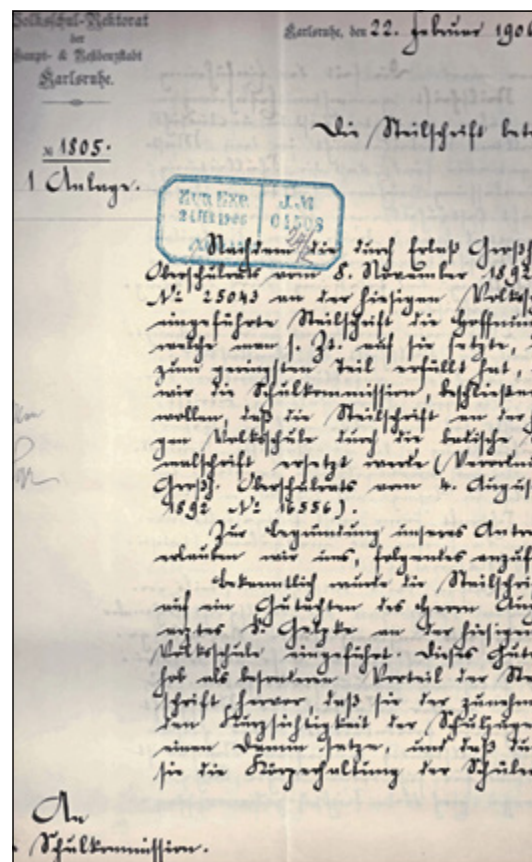 Volksschul-Rektorat
der
Haupt- & Residenzstadt
Karlsruhe.
Karlsruhe, den 22. Februar 1906
Die Steilschrift bet
№ 1805.
1 Anlage.
J.M
Nachdem die durch Erlaß Großh
Oberschulrats vom 8. November 1892
№ 25043 an der hiesigen Volkssch
eingeführte Steilschrift die Hoffnun
welche man s. Zt. auf sie setzte,
zum geringsten Teil erfüllt hat,
wir die Schulkommission, beschließe
wollen, daß die Steilschrift an der
gen Volksschule durch die badische
malschrift ersetzt werde (Verord
Großh. Oberschulrats vom 4. August
1892 № 16556).
Zur Begründung unseres Antra
erlauben wir uns, folgendes anzuf
Bekanntlich wurde die Steilschri
auf ein Gutachten des Herrn Aug
arztes Dr. Gelpke an der hiesigen
Volksschule eingeführt. Dieses Gut
hob als besonderen Vorteil der Ste
schrift hervor, daß sie der zunehm
den Kurzsichtigkeit der Schuljuge
einen Damm setze, und daß du
sie die Körperhaltung der Schüle
An
Schulkommission.